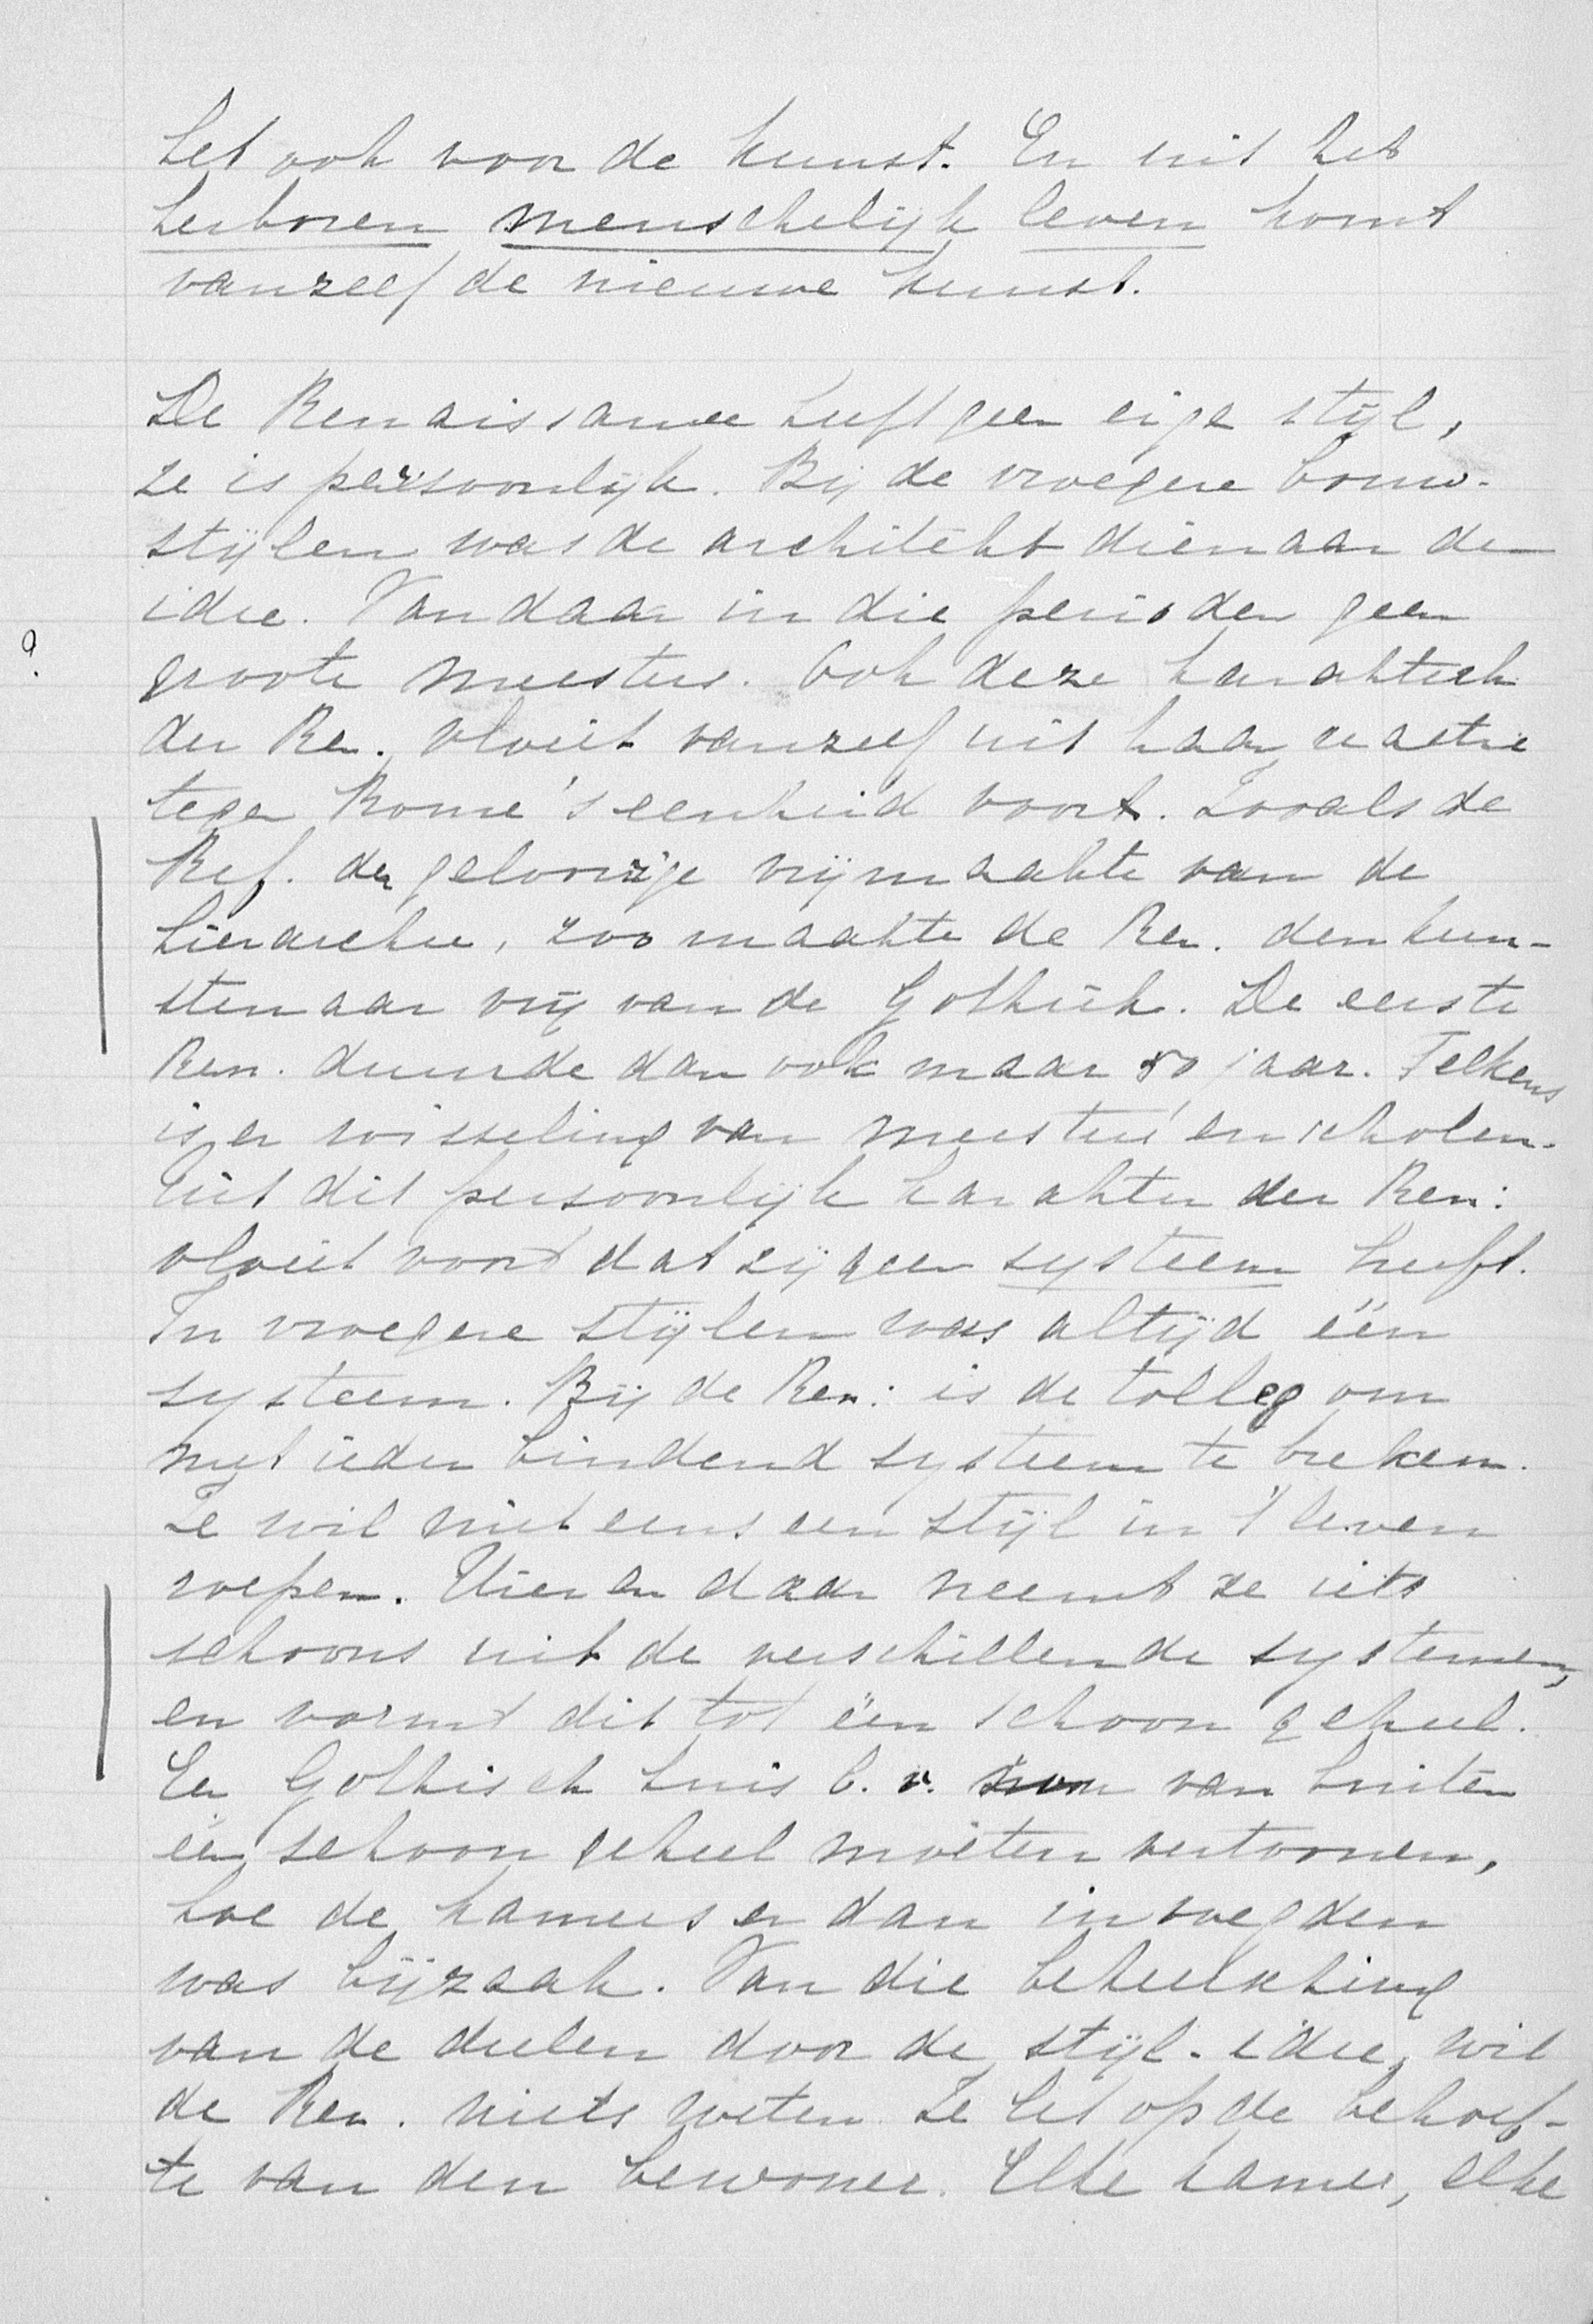 het ook voor de kunst. En uit het
herboren menschelijk leven komt
vanzelf de nieuwe kunst.
De Renaissance heeft geen eige stijl,
ze is persoonlijk. Bij de vroegere bouw-
stijlen was de architekt dienaar der
idee. Vandaar in die perioden geen
?
groote meesters. Ook deze karaktertrek
der Ren. vloeit vanzelf uit haar reactie
tegen Rome's eenheid voort. Zooals de
Ref. den geloovige vrijmaakte van de
hierarchie, zoo maakte de Ren. den kun-
stenaar vrij van de Gothiek. De eerste
Ren. duurde dan ook maar 80 jaar. Telkens
is er wisseling van meesters en scholen.
Uit dit persoonlijk karakter der Ren:
vloeit voort dat zij geen systeem heeft.
In vroegere stijlen was altijd één
systeem. Bij de Ren: is de toeleg om
met ieder bindend systeem te breken.
Ze wil niet eens een stijl in 't leven
roepen. Hier en daar neemt ze iets
schoons uit de verschillende systemen,
en vormt dit tot één schoon geheel.
Een Gothisch huis b.v. zou van buiten
één schoon geheel moeten vertoonen,
hoe de kamers er dan in voegden
was bijzaak. Van die beheersching
van de deelen door de stijl-idee, wil
de Ren. niets weten. Ze let op de behoef-
te van den bewoner. Elke kamer, elke